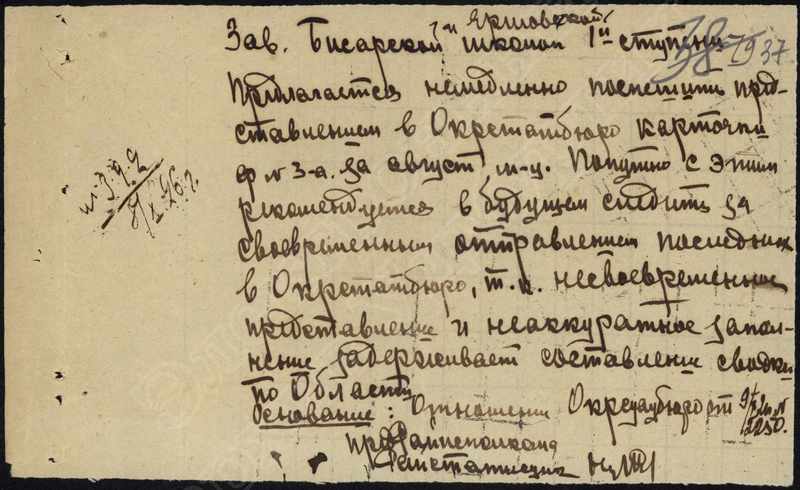 Зав. Бисарской и Ершовской школой 1й ступени
38 1937
Предлагается немедленно поспешить пред-
ставлением в Окрстатбюро карточки
ф № 3-а. за август м-ц. Попутно с этим
рекомендуется в будущем следить за
своевременным отправлением последних
в Окрстатбюро, т.к. несвоевременное
представление и неаккуратное запол-
нение задерживает составление сводки
по Области
Основание: Отношение Окрстатбюро от 9/
№ 2250.
Райисполкома
Райстатистик